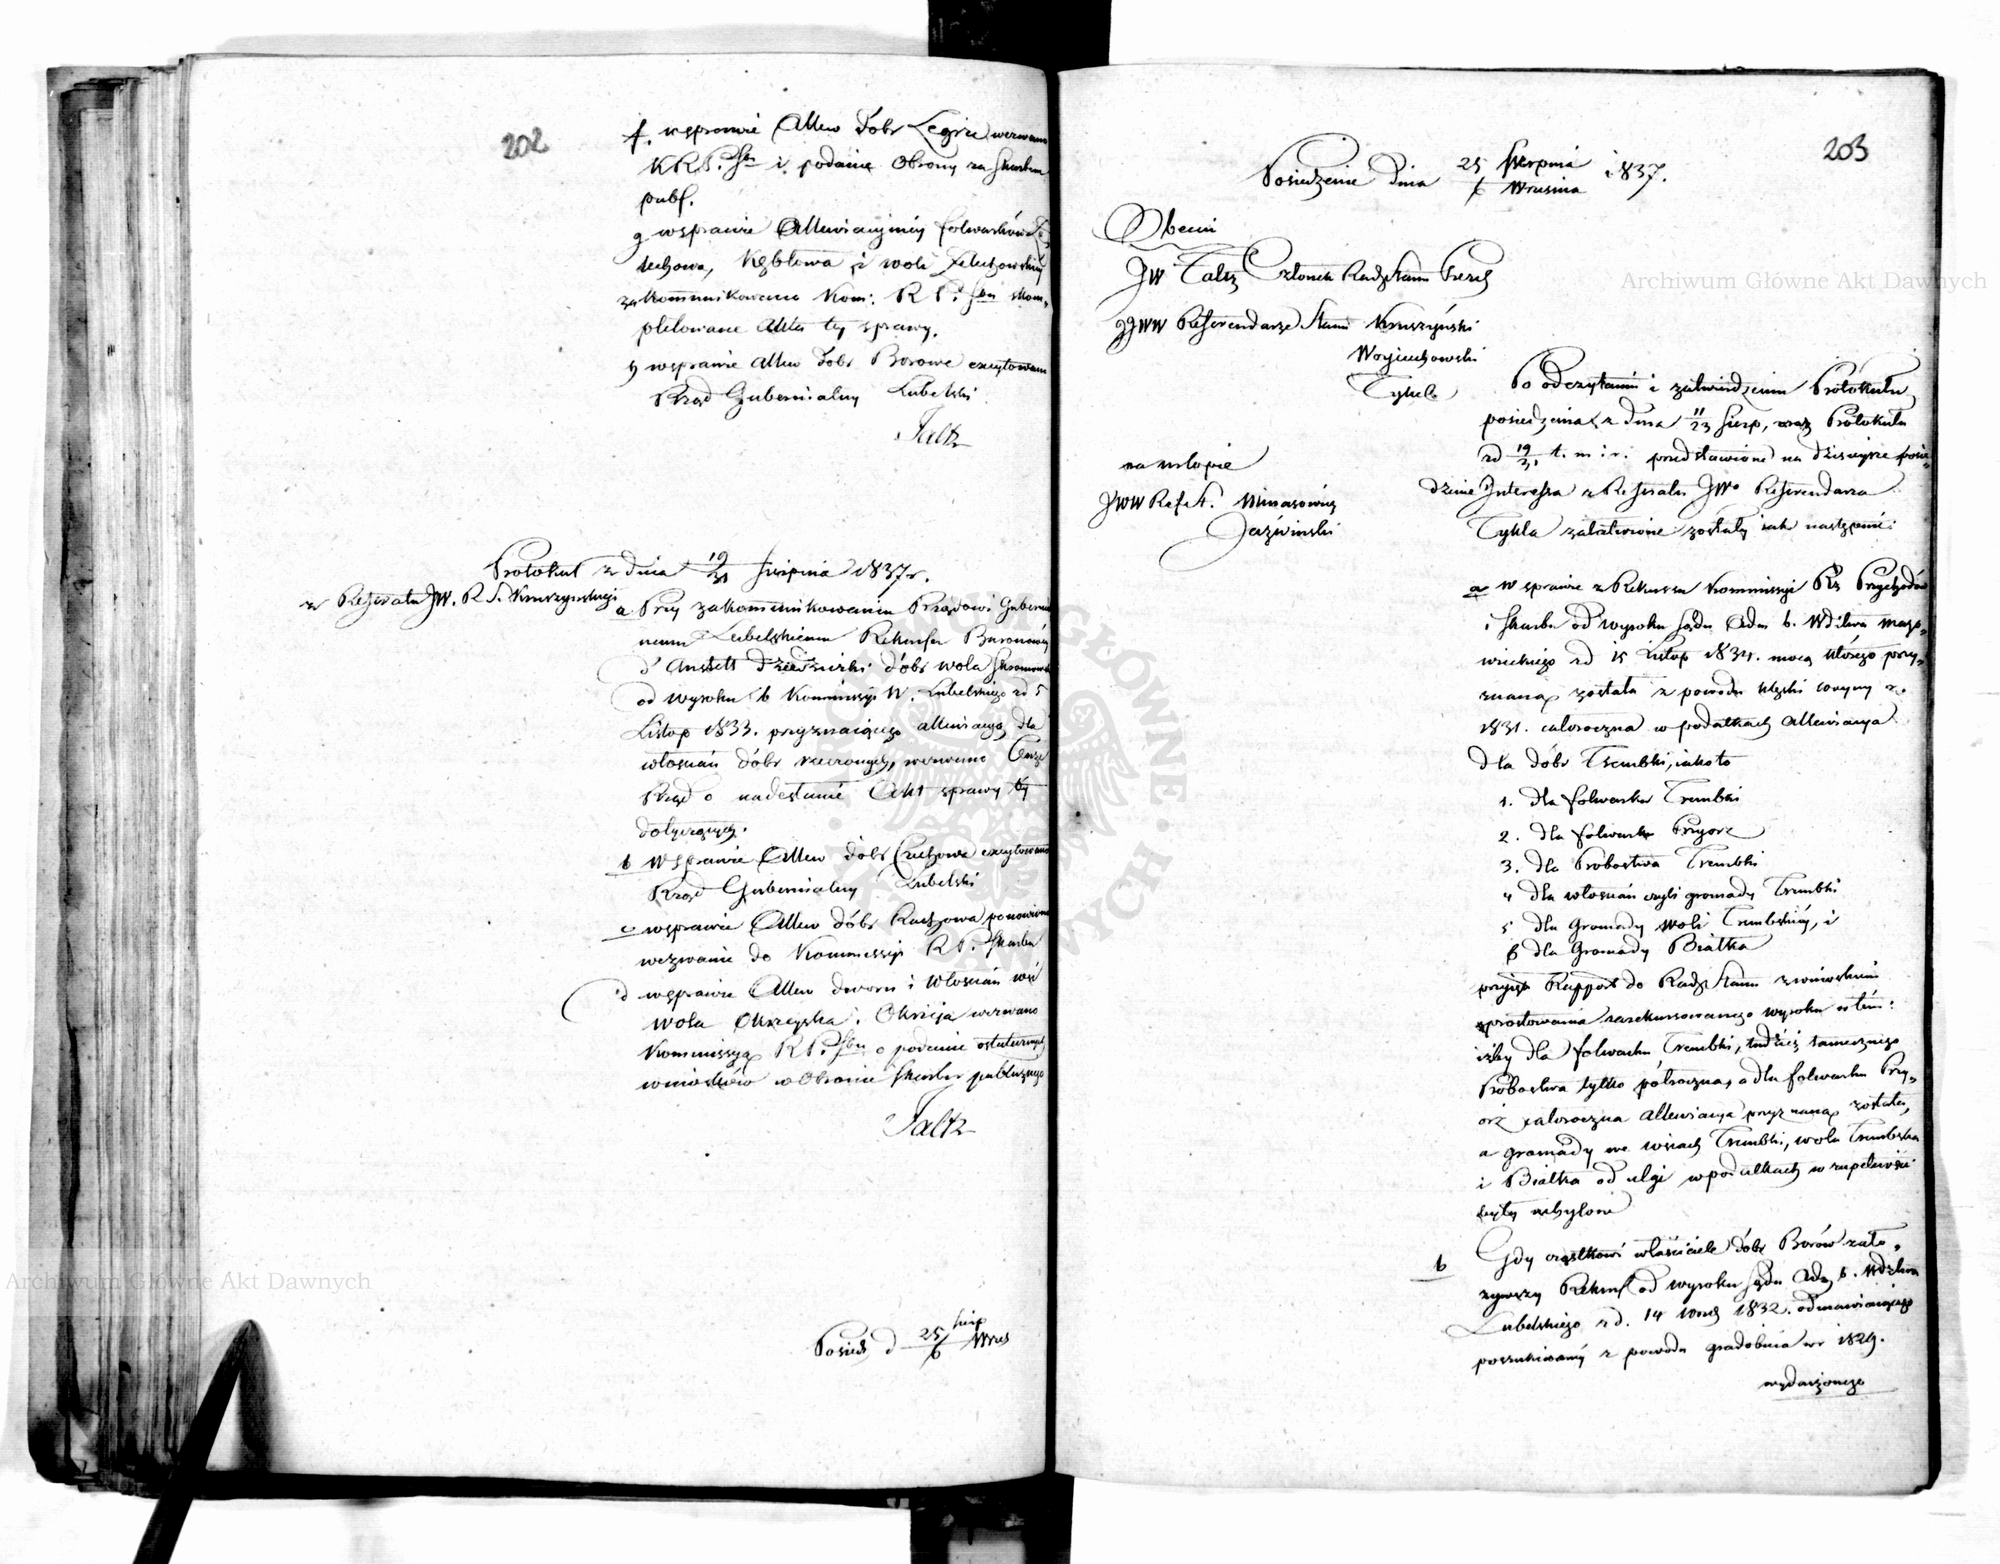 202
f. w sprawie Allew dobr Legric wezwano
K.R.P. Sku i podanie Obrony za Skarbem
publ.
g w sprawie Allewiacyjnéy folwarków
techowa, Kębłowa i woli
zakommunikowano Kom: R P. i Sku skom-
pletowane Akta téy sprawy.
h w sprawie allew dobr Borowe excytowano
Rząd Gubernialny Lubelski
Faltz
Protokuł z dnia 19/31 Sierpnia 1837 r.
z Referatu JW. R. S. Kruszyńskiego
a Przy zakommunikowaniu Rządowi Gubernial
nemu Lubelskiemu Rekursu Baronówny
d'Anstett dziedziczki dóbr wola Skromowska
od wyroku b Kommissyi W. Lubelskiego zd 5
Listop 1833. przyznaiącego allewiacyą dla
włościan dóbr rzeczonych, wezwano Tenże
Rząd o nadesłanie Akt sprawy téy
dotyczących.
b W sprawie Allew dobr excytowano
Rząd Gubernialny Lubelski
c w sprawie Allew dóbr Rachowa ponowiono
wezwanie do Kommissyi R P. i Skarbu
d w sprawie Allew dworu i Włościan wsi
Wola Okrzejska i Okrzeja wezwano
Kommissyą R P. i Sku o podanie ostatecznych
wniosków w Obronie Skarbu publicznego
Faltz
Posied d 25/6 Sierp/Wrześ
203
Posiedzenie dnia 25/6 Sierpnia/Września 1837.
Obecni
JW Faltz Członek Rady Stanu Prezd
JJWW Referendarze Stanu Kruszyński
Woyciechowski
Tykel
na urlopie
JWW Ref St. Minasowicz
Jaźwiński
Po odczytaniu i zatwierdzeniu Protokułu
posiedzenia z dnia 11/23 Sierp, oraz Protokułu
zd 19/31 t. m i r. przedstawione na dzisieysze posie-
dzenie Interessa z Referatu JWo Referendarza
Tykla załatwione zostały iak następuie:
a W sprawie z Rekursu Kommissyi Rz Przychodów
i Skarbu od wyroku Sądu Adm b. Wdztwa mazo-
wieckiego zd 15 Listop 1834. mocą którego przy-
znana została z powodu klęski woyny r.
1831. całoroczna w podatkach allewiacya
dla dóbr Trembki, iako to
1. dla folwarku Trembki
2. dla folwarku Przyorz
3. dla Probostwa Trembki
4 dla włościan czyli gromady Trembki
5 dla Gromady Woli Trembskiéy, i
6 dla Gromady Białka
przyięto Rapport do Rady Stanu z wnioskiem
sprostowania zarekursowanego wyroku w tém:
iżby dla folwarku Trembki, tudzież tamecznego
Probostwa tylko półroczna, a dla folwarku Przy-
orz całoroczna allewiacya przyznaną została,
a gromady we wsiach Trembki, wola Trembska
i Białka od ulgi w podatkach w zupełności
były uchylone
b Gdy cząstkowi właściciele dóbr Borów zało-
żywszy Rekurs od wyroku Sądu Adm b. Wdztwa
Lubelskiego z d. 14 Wrześ 1832. odmawiaiącego
poszukiwanéy z powodu gradobicia w r 1829.
wydarzonego